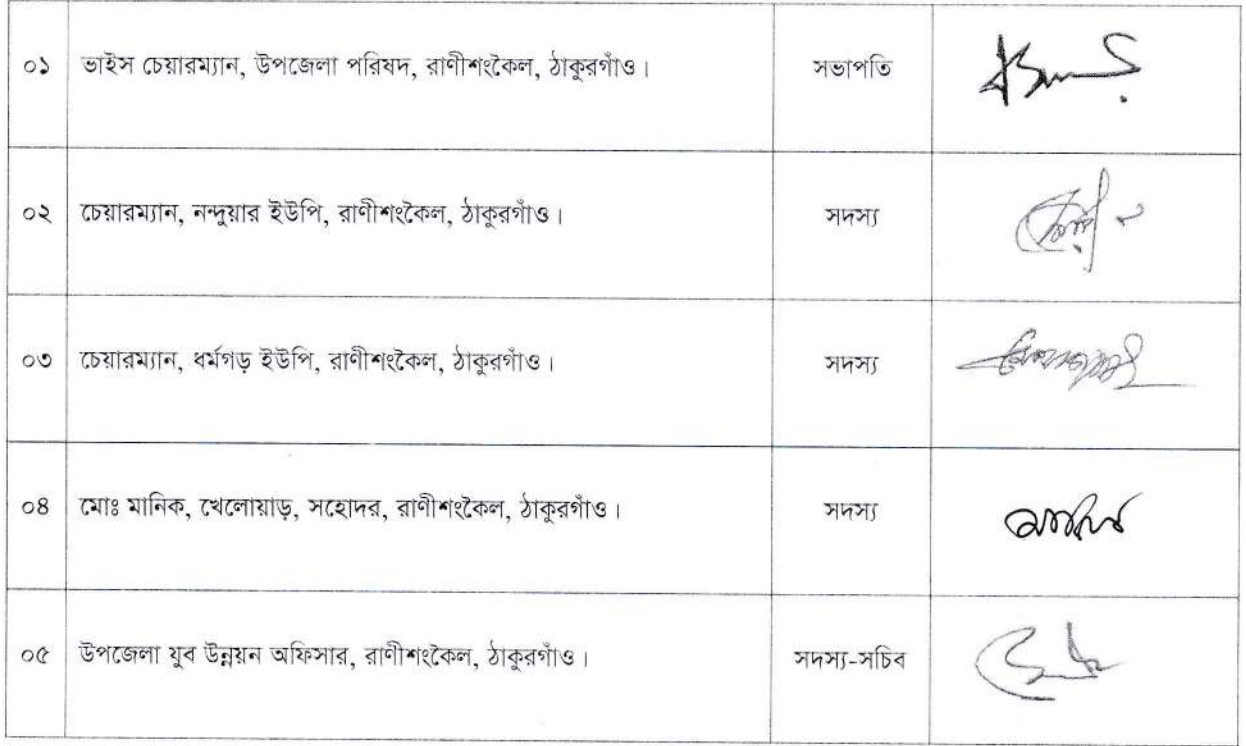 ০১ ভাইস চেয়ারম্যান, উপজেলা পরিষদ, রাণীশংকৈল, ঠাকুরগাঁও। সভাপতি
০২ চেয়ারম্যান, নন্দুয়ার ইউপি, রাণীশংকৈল, ঠাকুরগাঁও। সদস্য
০৩ চেয়ারম্যান, ধর্মগড় ইউপি, রাণীশংকৈল, ঠাকুরগাঁও। সদস্য
০৪ মোঃ মানিক, খেলোয়াড়, সহোদর, রাণীশংকৈল, ঠাকুরগাঁও। সদস্য
০৫ উপজেলা যুব উন্নয়ন অফিসার, রাণীশংকৈল, ঠাকুরগাঁও। সদস্য-সচিব